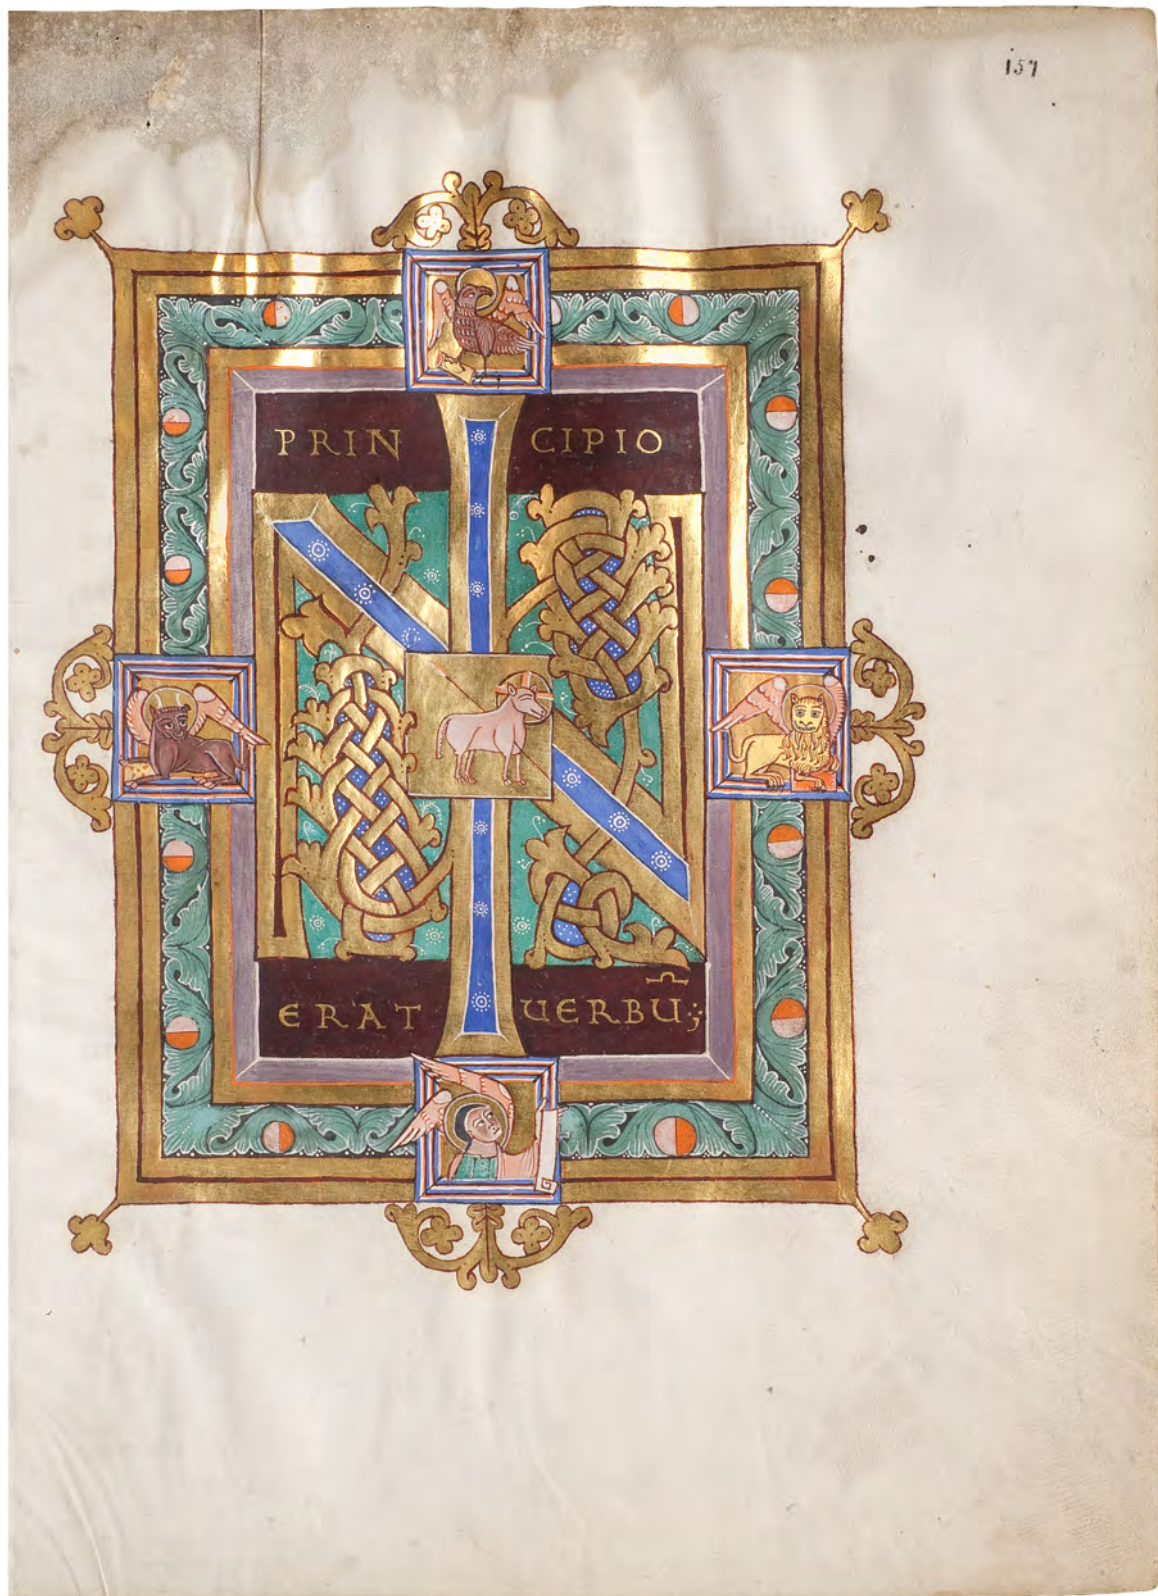 157
IN
PRIN CIPIO
ERAT UERBU̅;